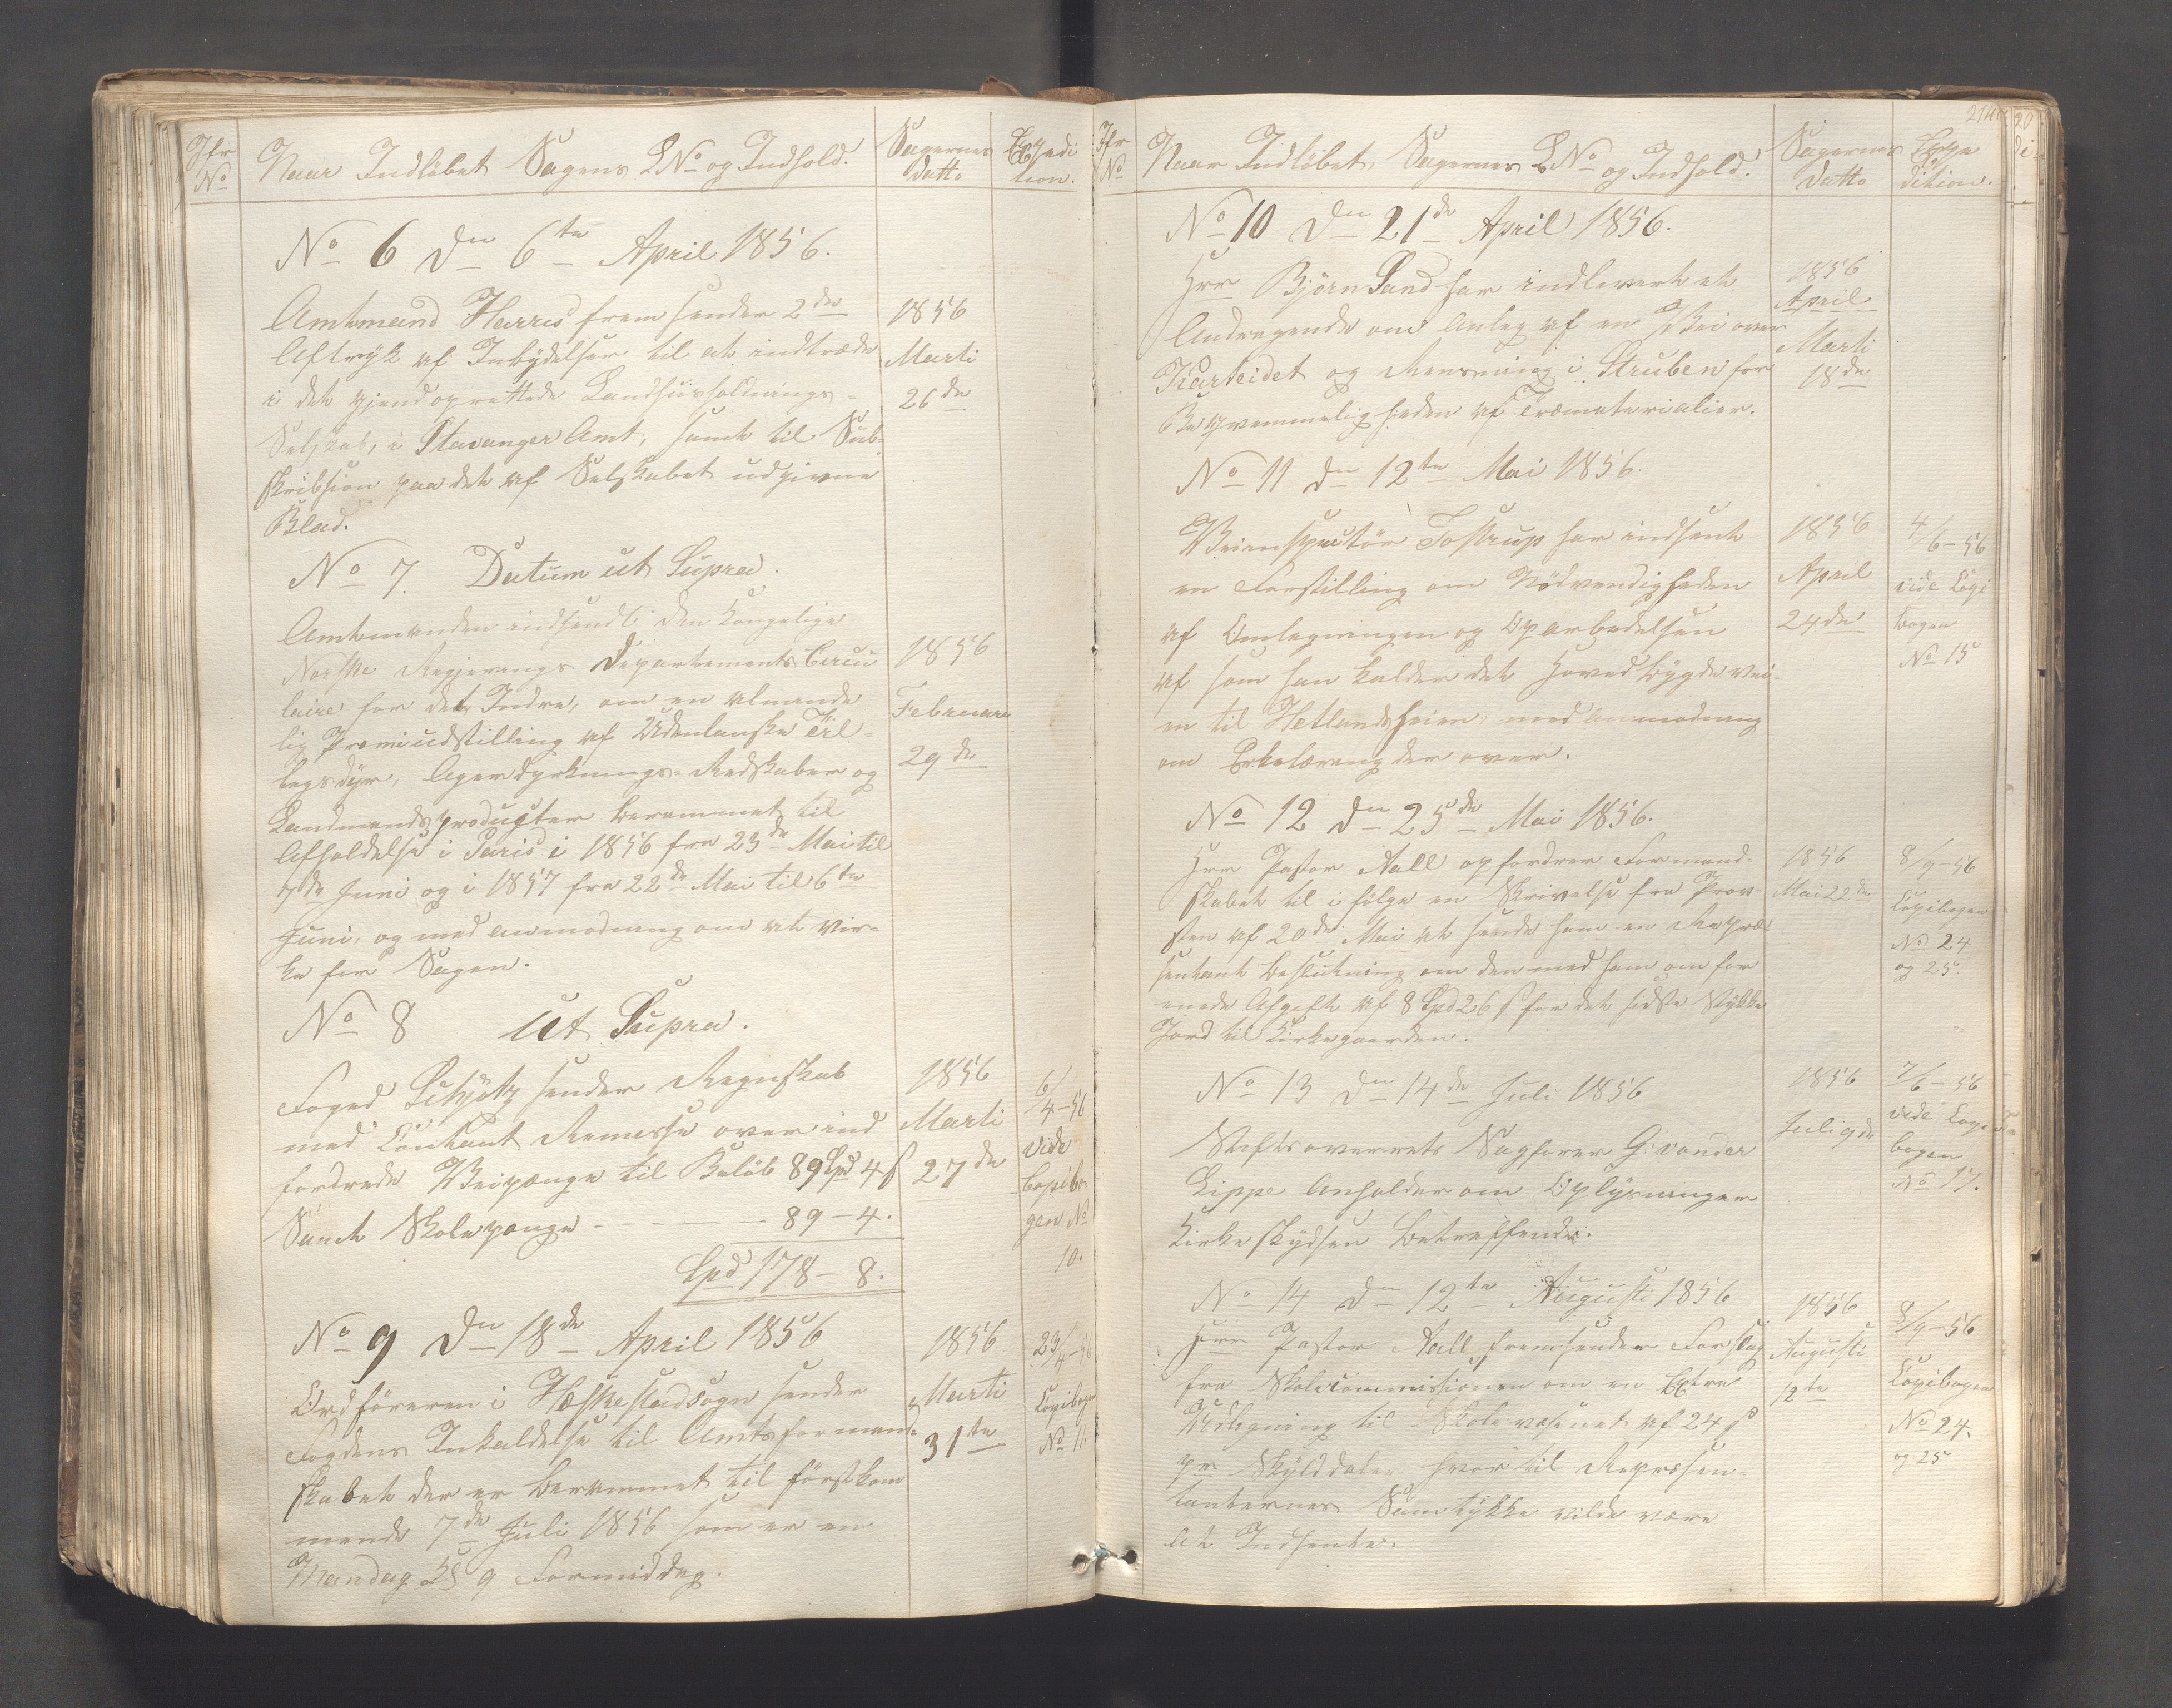 Jfr
No
Naar Indløbet Sagens L No og Indhold.
Sagernes
Datto
Expedi
tion.
No 6 Den 6te April 1856.
Amtmand Harris frem sender 2de
Aftryk af Inbydelser til at indtræde
i det gjenoprettede Landhuusholdnings-
Selskab, i Stavanger Amt, samt til Sub-
skribsion paa det af Selskabet udgivne
Blad.
1856
Marti
26de
No 7. Datum ut Supra.
Amtmanden indsendt den Kongelige
Norske Regjerings Departements Circu
laire for det Indre, om en almende
lig Præmiudstilling af Udenlanske Til-
legsdyr, Agerdyrknings-Redskaber og
Landmandsproducter berammet til
Afholdelse i Paris i 1856 fra 23de Mai til
7de Juni og i 1857 fra 22de Mai til 6te
Juni, og med anmodning om at vir-
ke for Sagen.
1856
Februari
29de
No 8 ut Supra.
Foged Schjøtz sender Regnskab
med Contant Remisse over ind
fordrede Veipænge til Beløb 89 Spd 4 s
Samt Skolepænge - - - - 89-4.
Spd 178-8.
1856
Marti
27de
6/4-56
vide
Copibo-
gen No
10.
No 9 Den 18de April 1856
Ordføreren i Hæskestadsogn sender
Fogdens Inkaldelse til Amtsformand-
skabet der er berammet til førstkom
mende 7de Juli 1856 som er en
Mandag Kl 9 Formiddag.
1856
Marti
31te
29/4-56
Copibogen
No 11.
Jfr
No
Naar Indløbet, Sagernes L No og Indhold.
Sagernes
Datto
Expe
dition.
214
No 10 Den 21de April 1856.
Hrr Bjørn Sand har indleveret et
Andragende om Anleg af en Vei over
Karteidet og Rensning i Struben for
Beqvemmeligheden af Træmaterialier.
1856
April
Marti
18de
No 11 Den 12te Mai 1856.
Veiinspectør Tostrup har indsendt
en Forstilling om Nødvendigheden
af Omlegningen og Oparbedelsen
af som han kalder det Hovedbygdevei-
en til Hetlandsheien, med anmodning
om Erkelæring der over.
1856
April
24de
4/6-56
vide Copi
bogen
No 15
No 12 Den 25de Mai 1856.
Hrr Pastor Aall opfordrer Formand-
skabet til i følge en Skrivelse fra Prov-
sten af 20de Mai at sende ham en Repræ-
sentant beslutning om den med ham om for
enede Afgift af 8 Spd 26 s for det sidste Stykke
Jord til Kirkegaarden.
1856
Mai 22de
8/9-56
Copibogen
No 24
og 25.
No 13 Den 14de Juli 1856
Stiftsoverrets Sagfører G. vonder
Lippe Anholder om Oplysninger
Kirkeskydsen betreffende.
1856
Juli 9de
7/6-56
vide Copie
bogen
No 17.
No 14 Den 12te Augusti 1856
Hrr Pastor Aall fremsender Forslag
fra Skolecommissionen om en Extra
Udligning til Skolevæsenet af 24 s
pr Skylddaler hvor til Repræsen-
tanternes Samtykke vilde være
at Indhente.
1856
Augusti
12te
8/9-56
Copibogen
No 24.
og 25